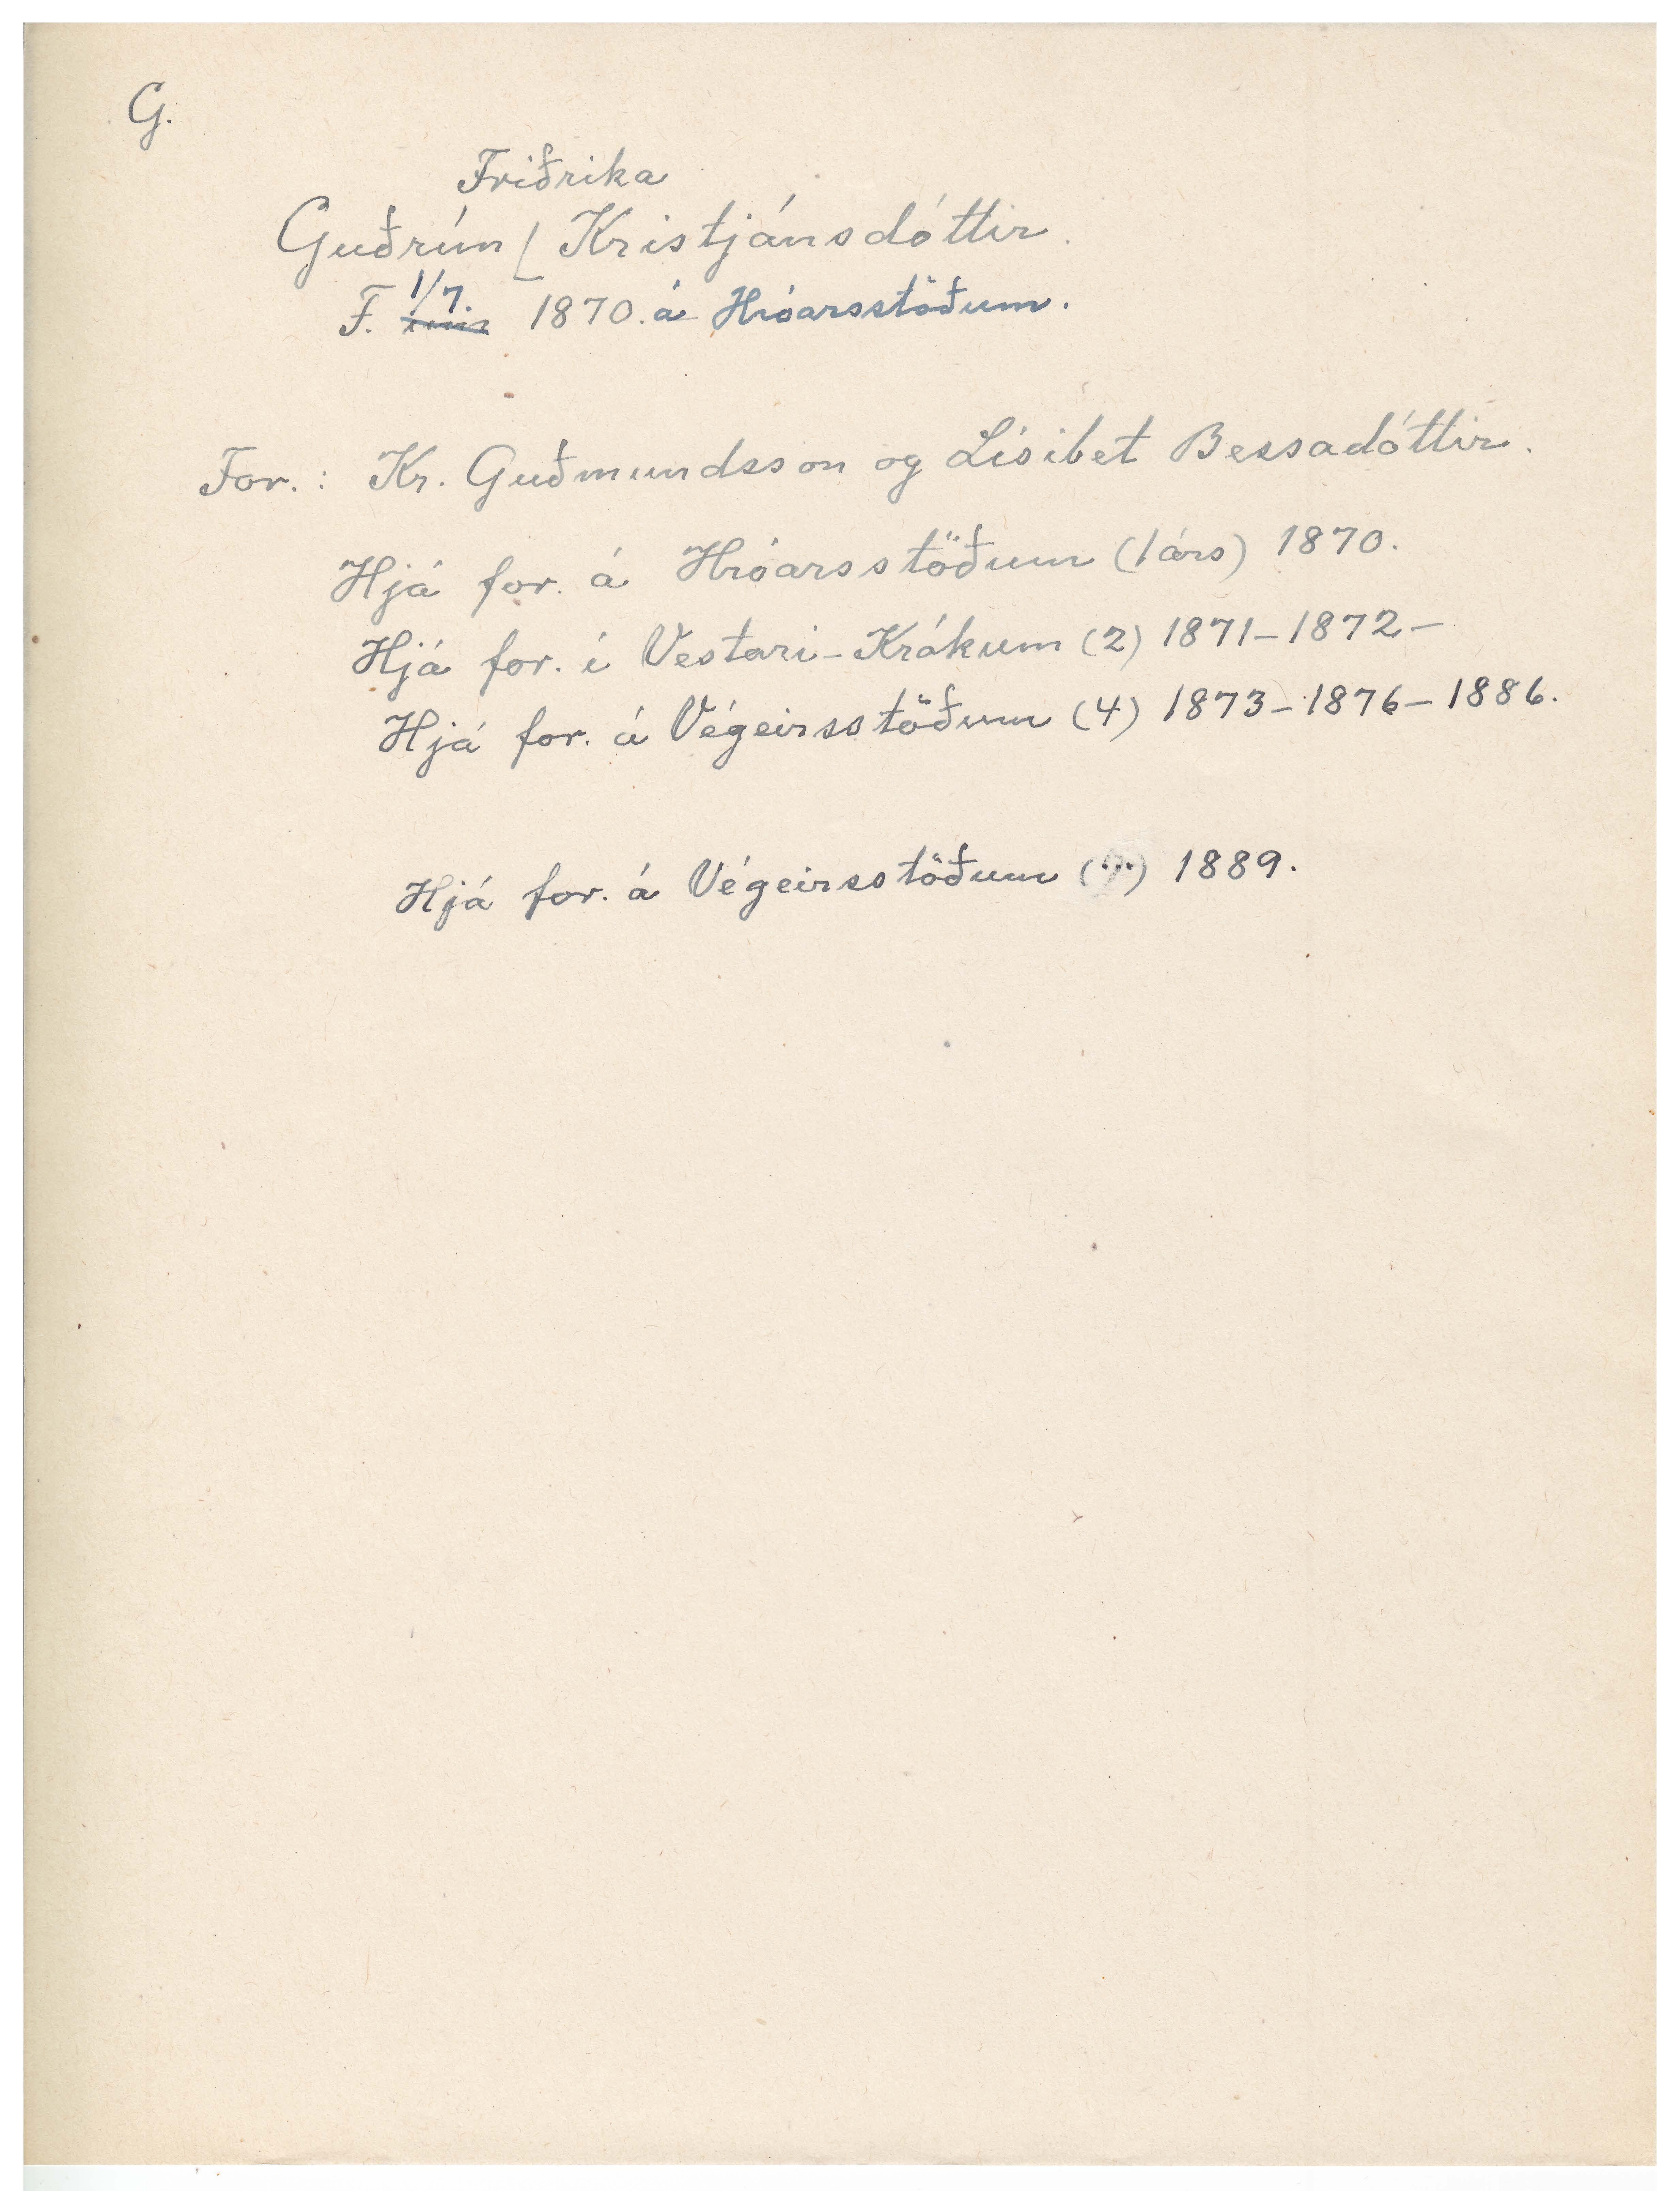 G.
Friðrika
Guðrún [ Kristjánsdóttir.
F. 1/7. 1870. á Hróarsstöðum.
For. : Kr. Guðmundsson og Lísibet Bessadóttir.
Hjá for. á Hróarsstöðum (1árs) 1870.
Hjá for. í Vestari-Krókum (2) 1871-1872-
Hjá for. á Végeirsstöðum (4) 1873-1876-1886.
Hjá for. á Végeirsstöðum 1889.